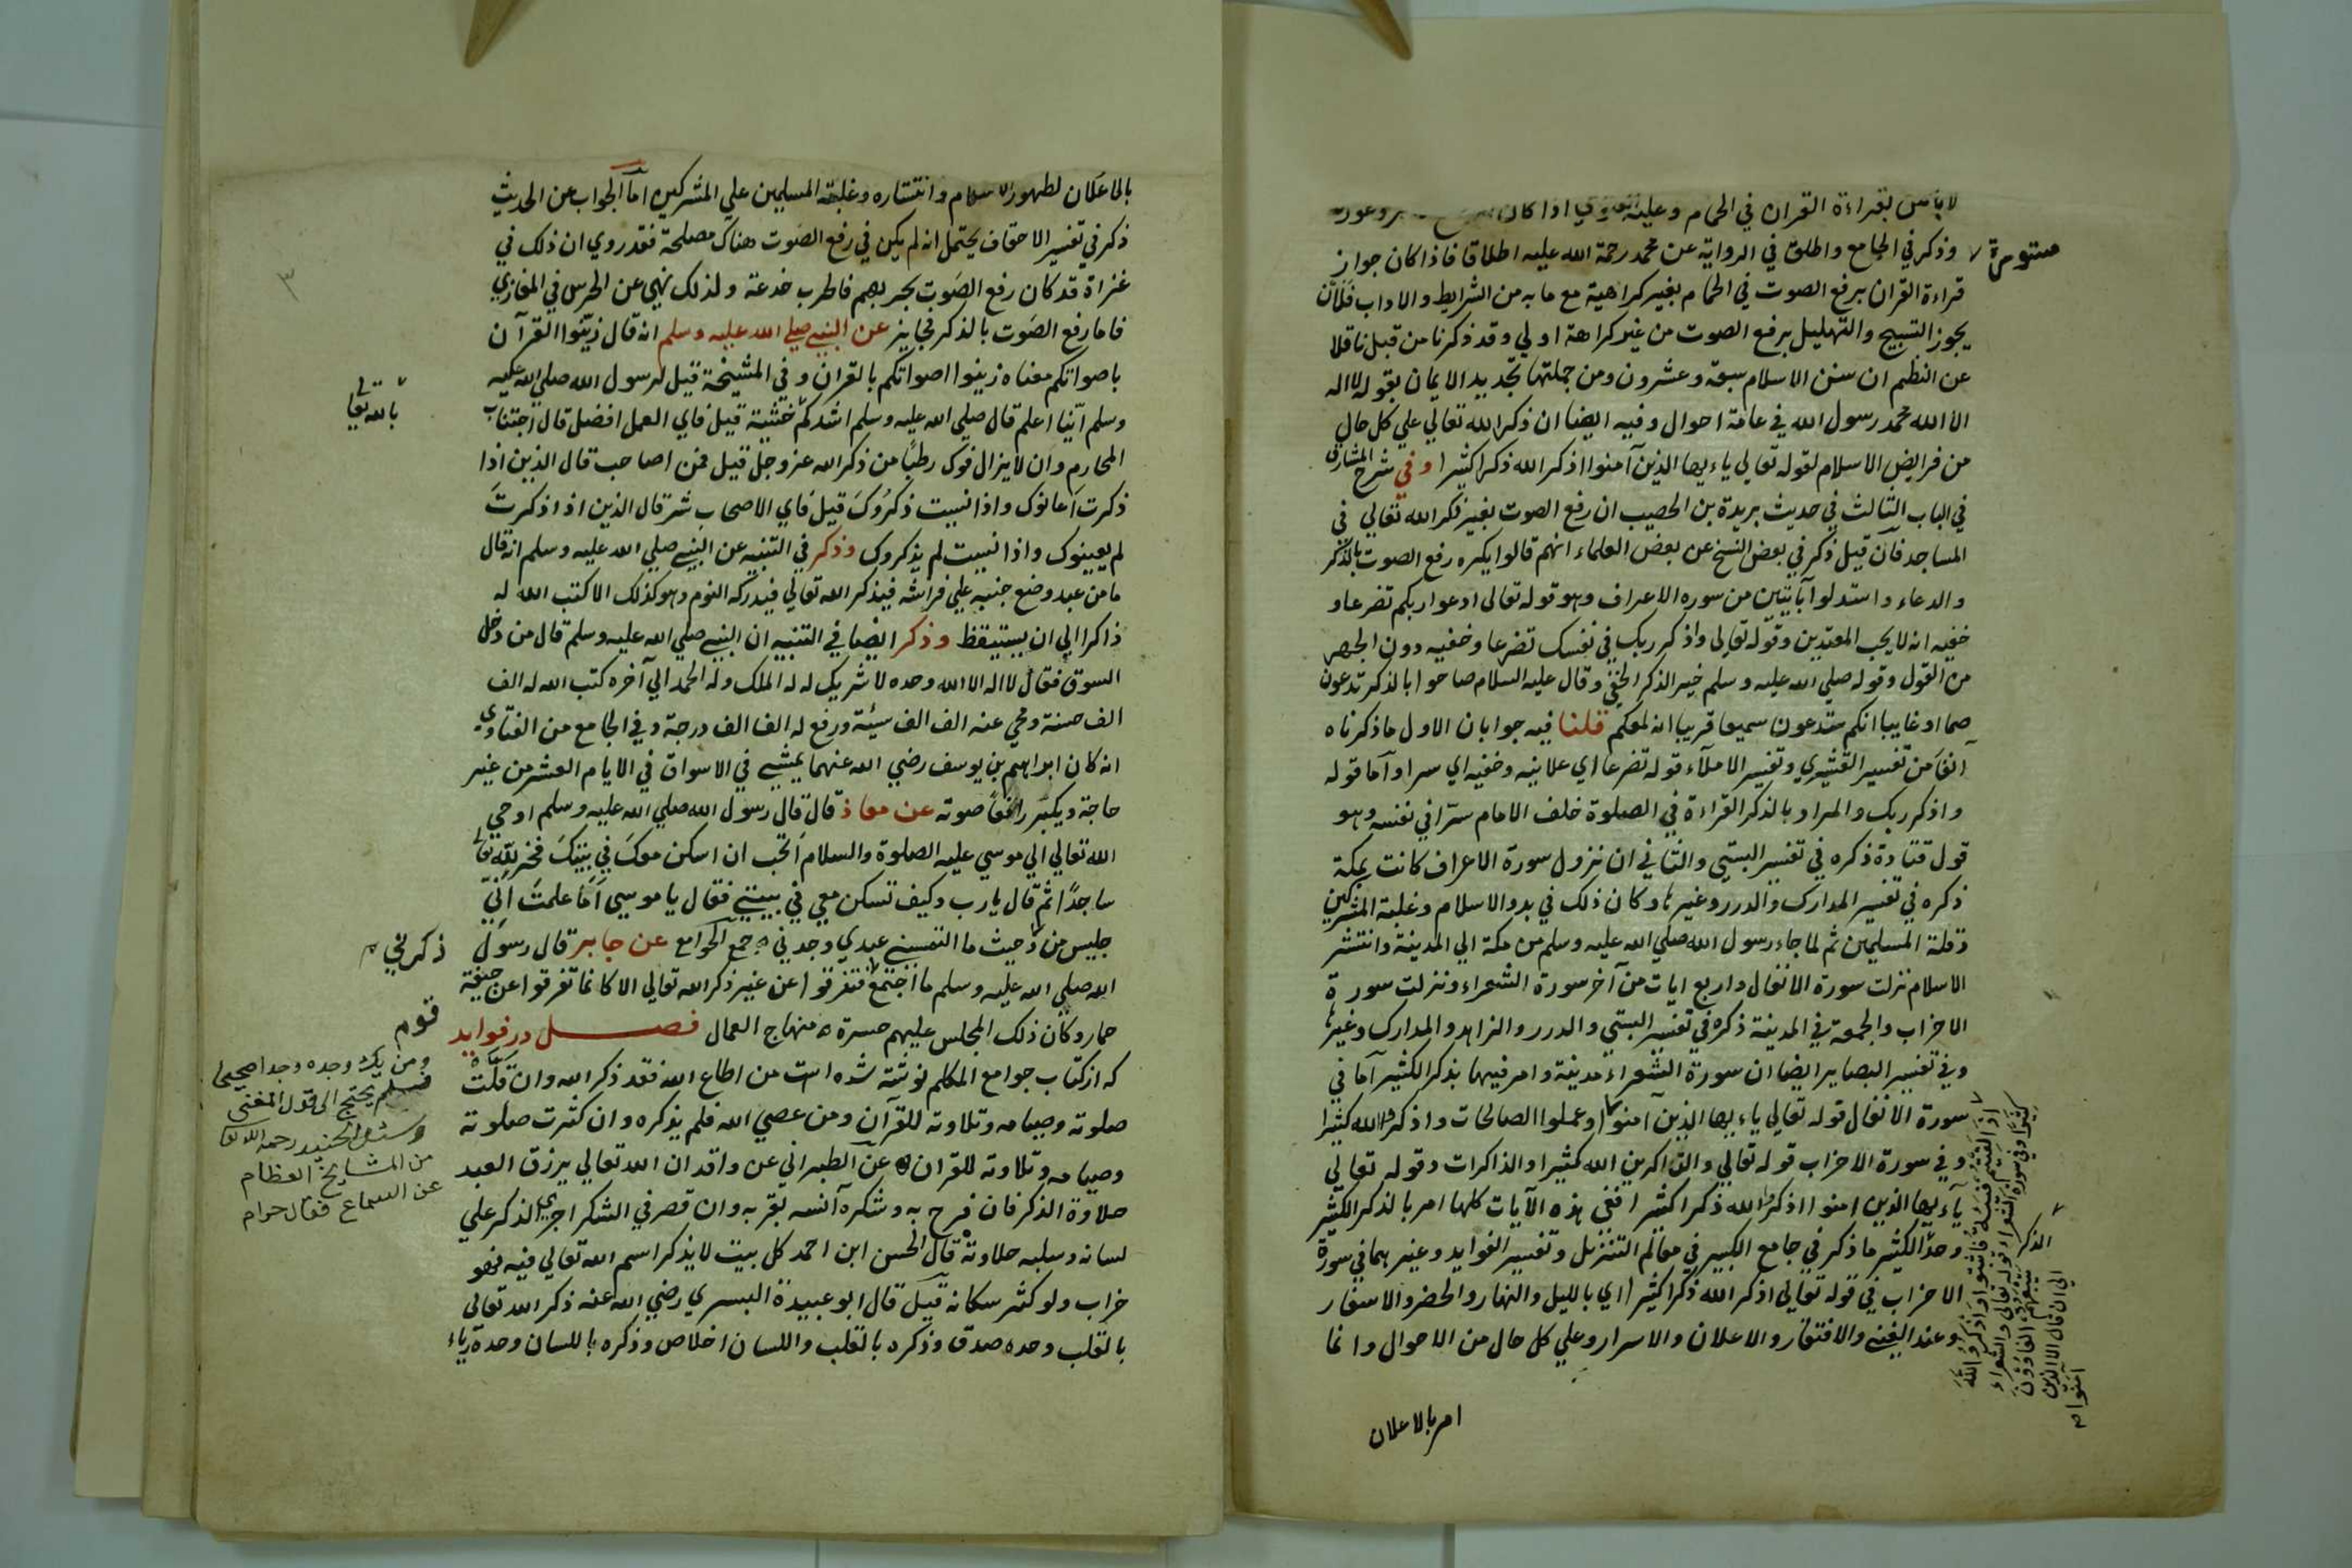 لا باس بقراءة القران في الحمام وعليه الفتوي اذا كان
وذكر في الجامع واطلق في الرواية عن محمد رحمة الله عليه اطلاقا فاذا كان جواز
مستورة
قراءة القران برفع الصوت في الحمام بغير كراهية مع ما به من الشرايط والاداب فلان
يجوز التسبيح والتهليل برفع الصوت من غير كراهة اولي وقد ذكرنا من قبل ناقلا
عن النظم ان سنن الاسلام سبعة وعشرون ومن جملتها تجديد الايمان بقوله لا اله
الا الله محمد رسول الله في عامة احوال وفيه ايضا ان ذكر الله تعالي علي كل حال
من فرايض الاسلام لقوله تعالي ياءيها الذين آمنوا اذكر الله ذكرا كثيرا وفي شرح المشارق
في الباب الثالث في حديث بريدة بن الحصيب ان رفع الصوت بغير ذكر الله تعالي في
المساجد فان قيل ذكر في بعض النسخ عن بعض العلماء انهم قالوا يكره رفع الصوت بالذكر
والدعاء واستدلوا بآيتين من سوره الاعراف وهو قوله تعالى ادعوا ربكم تضرعا و
خفيه انه لا يحب المعتدين وقوله تعالي واذكر ربك في نفسك تضرعا وخفيه دون الجهر
من القول وقوله صلي الله عليه وسلم خير الذكر الخفي وقال عليه السلام صاحوا بالذكر تدعون
صما او غايبا انكم ستدعون سميعا قريبا انه لمعكم قلنا فيه جوابان الاول ما ذكرناه
آنفا من تفسير القشيري وتفسير الاملاء قوله تضرعا اي علانيه وخفيه اي سرا واما قوله
واذكر ربك والمراد بالذكر القراءة في الصلوة خلف الامام سرا في نفسه وهو
قول قتادة ذكره في تفسير البستي والثاني ان نزول سورة الاعراف كانت بمكة
ذكره في تفسير المدارك والدرر وغيرها وكان ذلك في بدو الاسلام وغلبة المشركين
وقلة المسلمين ثم لما جاء رسول الله صلي الله عليه وسلم من مكة الي المدينة وانتشر
الاسلام نزلت سورة الانفال واربع ايات من آخر سورة الشعراء ونزلت سورة
الاحزاب والجمعة في المدينة ذكره في تفسير البستي والدرر والزاهد والمدارك وغيرها
وفي تفسير البصاير ايضا ان سورة الشعراء مدنية وامر فيهما بذكر الكثير اما في
سورة الانفال قوله تعالي ياءيها الذين آمنوا وعملوا الصالحات واذكروا الله كثيرا
وفي سورة الاحزاب قوله تعالي والذاكرين الله كثيرا والذاكرات وقوله تعالي
ياءيها الذين امنوا اذكروا الله ذكرا كثيرا ففي هذه الآيات كلها امر بالذكر الكثير
وحد الكثير ما ذكر في جامع الكبير في معالم التنزيل وتفسير الفوايد وغيرهما في سورة
الاحزاب في قوله تعالي اذكر الله ذكرا كثيرا اي بالليل والنهار والحضر والاسفار
وعند الغنى والافتقار والاعلان والاسرار وعلي كل حال من الاحوال وانما
اذا لقيتم فئة فاثبتوا واذكروا الله
كثيرا وفي سورة الشعراء قوله تعالى والشعراء
يتبعهم الغاوون
الي ان قال الا الذين
امنوا
الذكر
امر بالاعلان
بالاعلان لظهور الاسلام وانتشاره وغلبة المسلمين علي المشركين اما الجواب عن الحديث
ذكر في تفسير الاحقاف يحتمل انه لم يكن في رفع الصوت هناك مصلحة فقد روي ان ذلك في
غزاة قد كان رفع الصوت يجر بهم فالحرب خدعة ولذلك نهي عن الجرس في المغازي
٣
فاما رفع الصوت بالذكر فجايز عن النبي صلي الله عليه وسلم انه قال زينوا القرآن
باصواتكم معناه زينوا اصواتكم بالقران وفي المشيخة قيل لرسول الله صلي الله عليه
وسلم اينا اعلم قال صلي الله عليه وسلم اشدكم خشية قيل فاي العمل افضل قال اجتناب
بالله تعالي
المحارم وان لا يزال فوك رطبا من ذكر الله عز وجل قيل فمن اصاحب قال الذين اذا
ذكرت اعانوك واذا نسيت ذكروك قيل فاي الاصحاب شر قال الذين اذا ذكرت
لم يعينوك واذا نسيت لم يذكروك وذكر في التنبيه عن النبي صلي الله عليه وسلم انه قال
ما من عبد وضع جنبه علي فراشه فيذكر الله تعالي فيدركه النوم وهو كذلك الا كتب الله له
ذاكرا الي ان يستيقظ وذكر ايضا في التنبيه ان النبي صلي الله عليه وسلم قال من دخل
السوق فقال لا اله الا الله وحده لا شريك له له الملك وله الحمد الي آخره كتب الله له الف
الف حسنة ومحي عنه الف الف سيئة ورفع له الف الف درجة وفي الجامع من الفتاوي
انه كان ابراهيم بن يوسف رضي الله عنهما يمشي في الاسواق في الايام العشر من غير
حاجة ويكبر رافعا صوته عن معاذ قال قال رسول الله صلي الله عليه وسلم اوحي
الله تعالي الي موسي عليه الصلوة والسلام اتحب ان اسكن معك في بيتك فخر لله تعالي
ساجدا ثم قال يارب وكيف تسكن معي في بيتي فقال يا موسى اما علمت اني
جليس من ذكرني حيث ما التمسني عبدي وجدني جمع الجوامع عن جابر قال رسول
الله صلي الله عليه وسلم ما اجتمع قوم فتفرقوا عن غير ذكر الله تعالي الا كانما تفرقوا عن جيفة
حمار وكان ذلك المجلس عليهم حسرة منهاج العمال فصل در فوايد
كه از كتاب جوامع الكلم نوشته شده است من اطاع الله فقد ذكر الله وان قلت
صلوته وصيامه وتلاوته للقرآن ومن عصي الله فلم يذكره وان كثرت صلوته
وصيامه وتلاوته للقران عن الطبراني عن واقد ان الله تعالي يرزق العبد
حلاوة الذكر فان فرح به وشكره آنسه بقربه وان قصر في الشكر اجري الذكر علي
لسانه وسلبه حلاوته قال الحسن ابن احمد كل بيت لا يذكر اسم الله تعالي فيه فهو
خراب ولو كثر سكانه قيل قال ابو عبيدة البسري رضي الله عنه ذكر الله تعالي
بالقلب وحده صدق وذكره بالقلب واللسان اخلاص وذكره باللسان وحده رياء
ومن يك وجده وجدا صحيحا
فلم يحتج الى قول المغني
وسئل الجنيد رحمه الله تعا
من المشايخ العظام
عن السماع فقال حرام